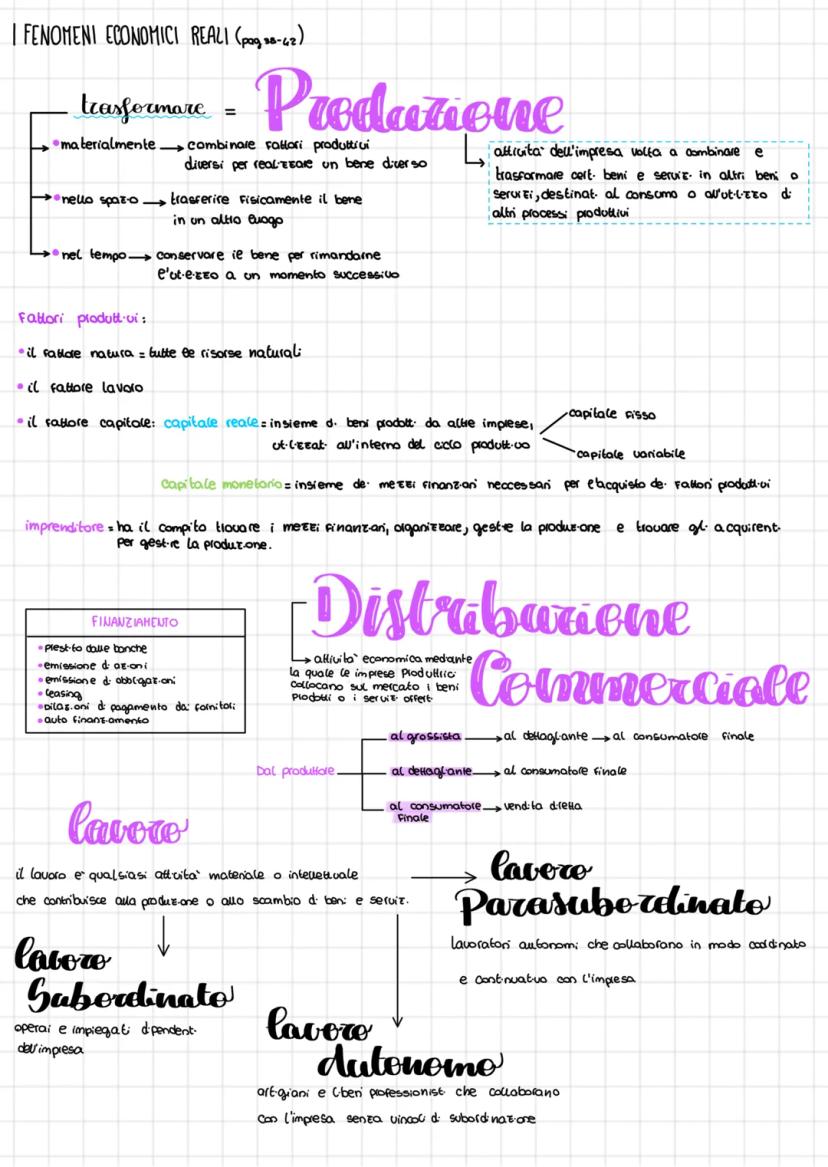 I FENOMENI ECONOMICI REALI (pag 38-42)
trasformare = Produzione
• materialmente → combinare fattori produttivi
diversi per realizzare un bene diverso
• nello spazio → trasferire fisicamente il bene
in un altro luogo
• nel tempo → conservare il bene per rimandarne
l'utilizzo a un momento successivo
attività dell'impresa volta a combinare e
trasformare certi beni e servizi in altri beni o
servizi, destinati al consumo o all'utilizzo di
altri processi produttivi
Fattori produttivi:
• il fattore natura = tutte le risorse naturali
• il fattore lavoro
• il fattore capitale: capitale reale = insieme di beni prodotti da altre imprese,
utilizzati all'interno del ciclo produttivo
capitale fisso
capitale variabile
capitale monetario = insieme dei mezzi finanziari neccessari per l'acquisto dei fattori produttivi
imprenditore = ha il compito trovare i mezzi finanziari, organizzare, gestire la produzione e trovare gli acquirenti
per gestire la produzione.
FINANZIAMENTO
• prestito dalle banche
• emissione di azioni
• emissione di obbligazioni
• leasing
• dilazioni di pagamento dai fornitori
• auto finanziamento
Distribuzione
Commerciale
attività economica mediante
la quale le imprese produttrici
collocano sul mercato i beni
prodotti o i servizi offerti
Dal produttore
al grossista → al dettagliante → al consumatore finale
al dettagliante → al consumatore finale
al consumatore → vendita diretta
finale
lavoro
il lavoro è qualsiasi attività materiale o intellettuale
che contribuisce alla produzione o allo scambio di beni e servizi.
lavoro
Parasubordinato
lavoratori autonomi che collaborano in modo coordinato
e continuativo con l'impresa
lavoro
Subordinato
operai e impiegati dipendenti
dell'impresa
lavoro
Autonomo
artigiani e liberi professionisti che collaborano
con l'impresa senza vincoli di subordinazione